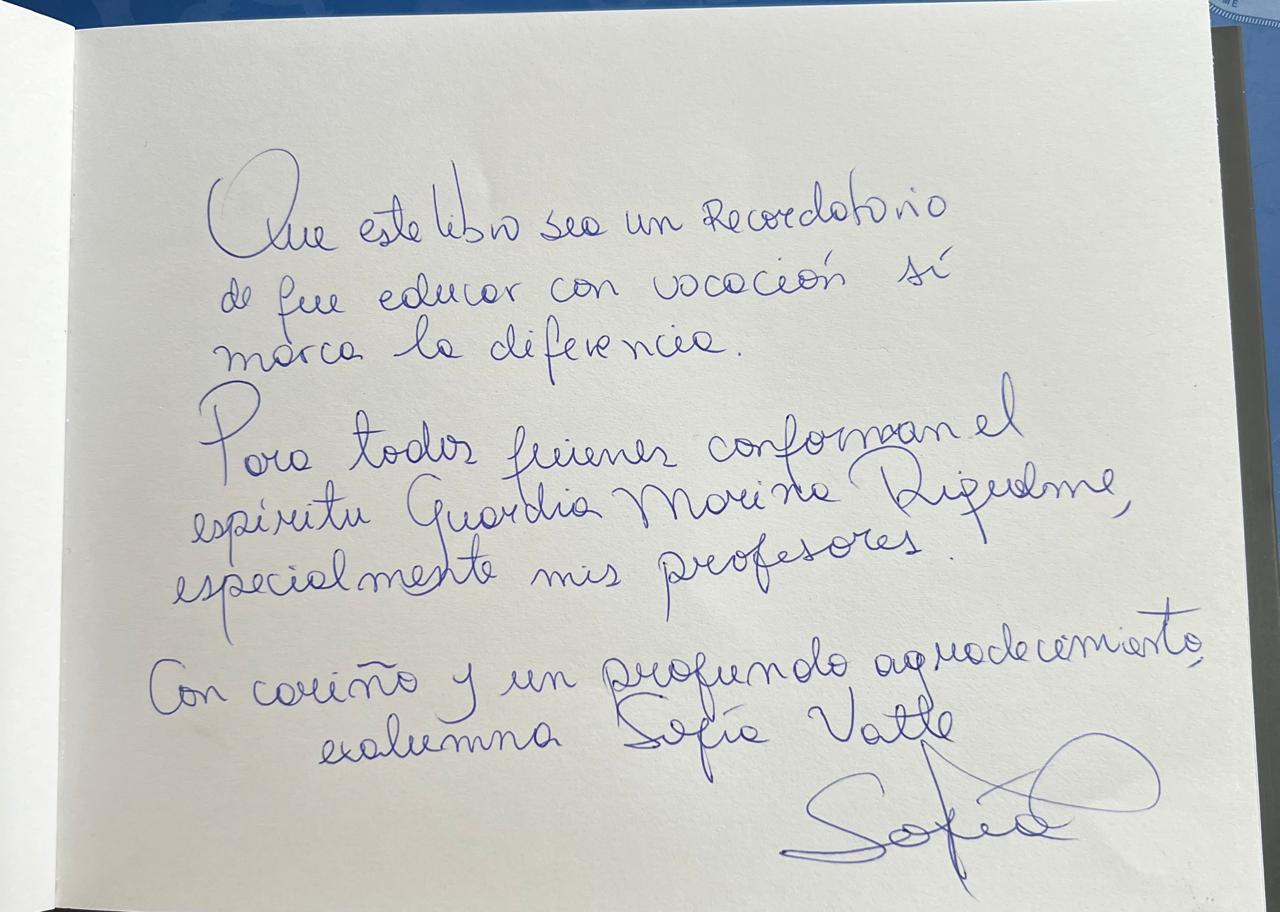 Que este libro sea un Recordatorio
de que educar con vocación sí
marca la diferencia.
Para todos quienes conforman el
espíritu Guardia Marina Riquelme,
especialmente mis profesores.
Con cariño y un profundo agradecimiento,
exalumna Sofía Vatte
Sofía